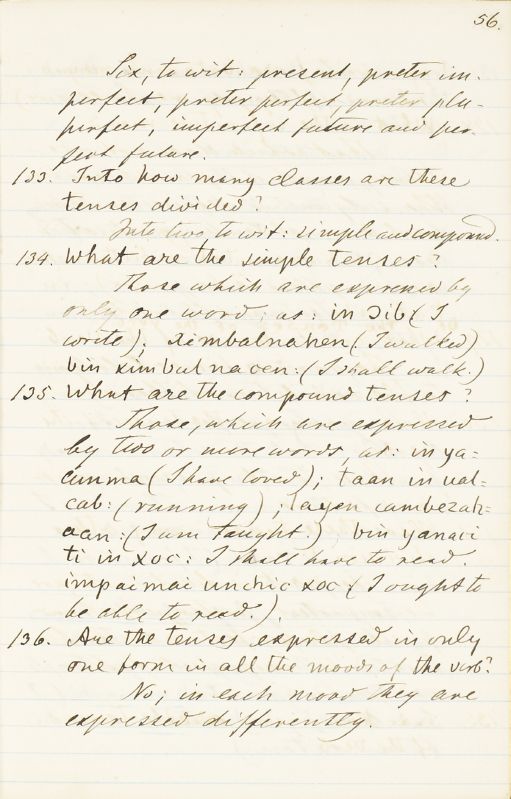 56.
Six, to wit: present, preter im-
perfect, preter perfect, preter plu-
perfect, imperfect future and per-
fect future.
133. Into how many classes are these
tenses divided?
Into two, to wit: simple and compound.
134. What are the simple tenses?
Those which are expressed by
only one word; as: in ɔib (I
write); ximbalnahen (I walked)
bin ximbalnacen: (I shall walk.)
135. What are the compound tenses?
Those, which are expressed
by two or more words, as: in ya-
cunma (I have loved); taan in ual-
cab: (running); layen cambezah-
aan: (I am taught.) bin yanaci
ti in xoc: I shall have to read.
impaimai unchic xoc (I ought to
be able to read.).
136. Are the tenses expressed in only
one form in all the moods of the verb?
No; in each mood they are
expressed differently.